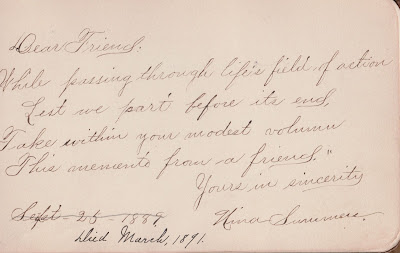 Dear Friend.
While passing through life's field of action
Lest we part before its end,
Take within your modest volumn
This memento from a friend."
Yours in sincerity
Sept - 25 - 1889.
Nina Summers.
Died March, 1891.